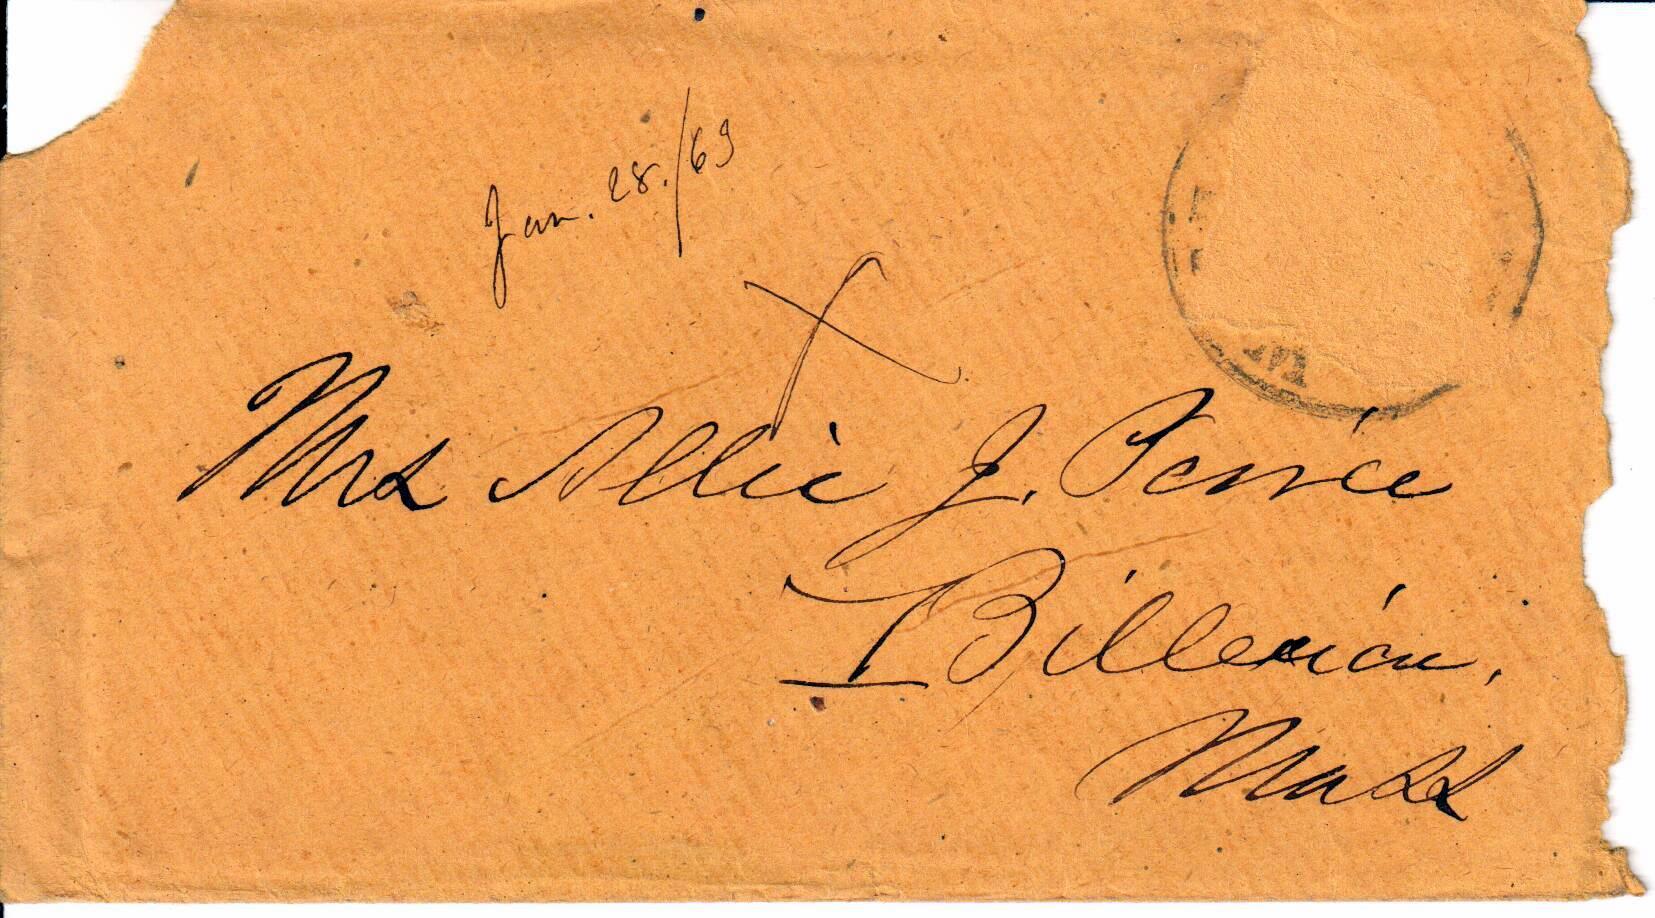 Jan. 28./63
X
Mrs Allie J. Peirce
Billerica,
Mass